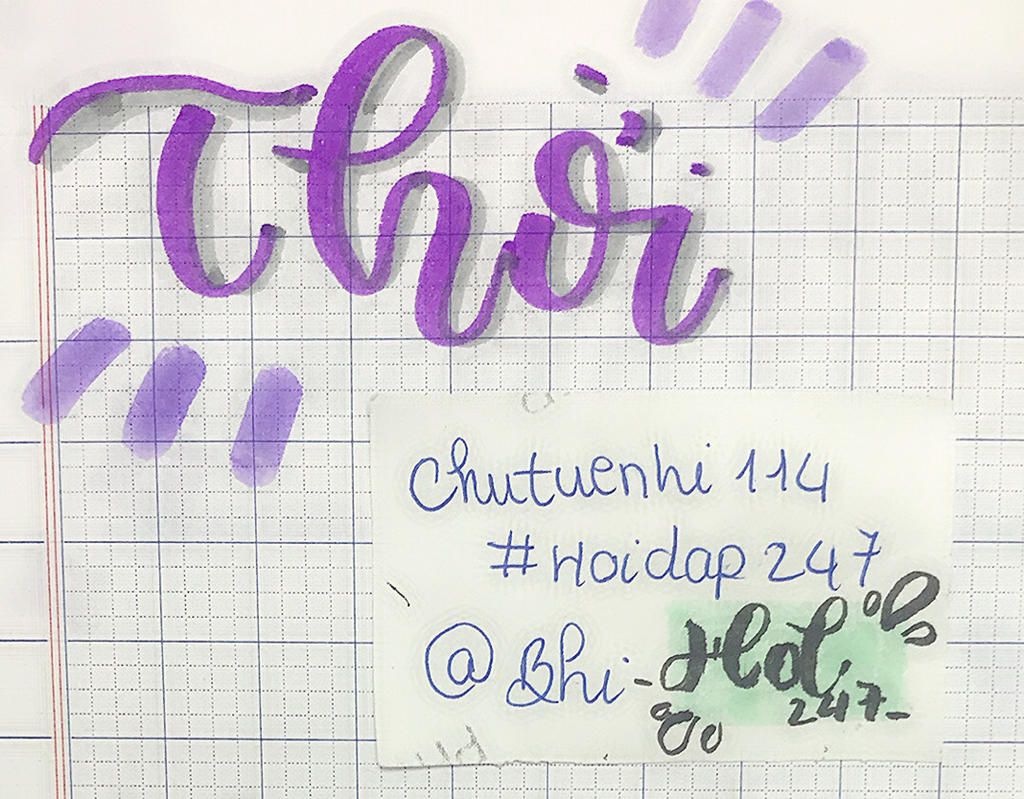 Thời
Chutuenhi 114
#Hoidap 247
@Bhi-
247-